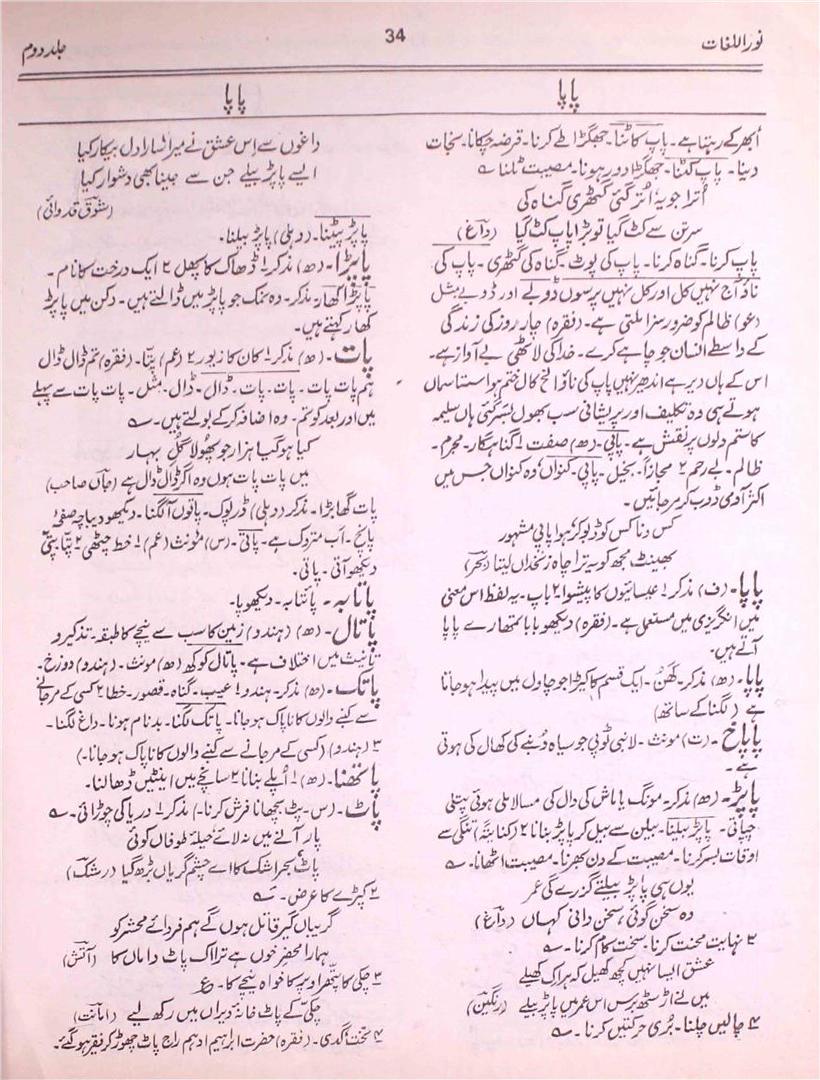 نور اللغات
34
جلد دوم
پاپا
پاپا
اُبھر کے رہتا ہے۔ پاپ کاٹنا۔ جھگڑا طے کرنا۔ قرضہ چکانا۔ نجات
دینا۔ پاپ کٹنا۔ جھگڑا دور ہونا۔ مصیبت ٹلنا ؎
اُترا جو یہ اُتر گئی گٹھری گناہ کی
سر تن سے کٹ گیا تو بڑا پاپ کٹ گیا (داغ)
پاپ کرنا۔ گناہ کرنا۔ پاپ کی پوٹ۔ گناہ کی گٹھری۔ پاپ کی
ناؤ آج نہیں کل اور کل نہیں پرسوں ڈوبے اور ڈوبے۔ مثل
(عو) ظالم کو ضرور سزا ملتی ہے۔ (فقرہ) چار روز کی زندگی
کے واسطے انسان جو چاہے کرے۔ خدا کی لاٹھی بے آواز ہے۔
اس کے ہاں دیر ہے اندھیر نہیں پاپ کی ناؤ الخ کال ختم ہوا سستا سماں
ہوتے ہی وہ تکلیف اور پریشانی سب بھول بسر گئی ہاں سلیمہ
کا ستم دلوں پر نقش ہے۔ پاپی۔ (ھ) صفت ۱ گناہگار۔ مجرم۔
ظالم۔ بے رحم ۲ مجازاً۔ بخیل۔ پاپی۔ کنواں۔ وہ کنواں جس میں
اکثر آدمی ڈوب کر مر جائیں۔
کس دنا کس کو ڈبو کر ہوا پاپی مشہور
بھینٹ مجھ کو یہ ترا چاہ زنخداں لیتا (سحر)
پاپا۔ (ف) مذکر ۱ عیسائیوں کا پیشوا ۲ باپ۔ یہ لفظ اس معنی
میں انگریزی میں مستعمل ہے۔ (فقرہ) دیکھو بابا تمھارے پاپا
آتے ہیں۔
پاپا۔ (ھ) مذکر۔ گھن۔ ایک قسم کا کیڑا جو چاول میں پیدا ہو جاتا
ہے (لگنا کے ساتھ)
پاپاخ۔ (ت) مونث۔ لانبی ٹوپی جو سیاہ دُنبے کی کھال کی ہوتی
ہے۔
پاپڑ۔ (ھ) مذکر۔ مونگ یا ماش کی دال کی مسالا ملی ہوئی پتلی
چپاتی۔ پاپڑ بیلنا۔ بیلن سے بیل کر پاپڑ بنانا ۲ (کنایۃً) تنگی سے
اوقات بسر کرنا۔ مصیبت کے دن بھرنا۔ مصیبت اٹھانا۔ ؎
یوں ہی پاپڑ بیلتے گزرے گی عمر
وہ سخن گوئی، سخن دانی کہاں (داغ)
۳ نہایت محنت کرنا۔ سخت کام کرنا۔ ؎
عشق ایسا نہیں کچھ کھیل کہ ہر اک کھیلے
میں نے اڑسٹھ برس اس عمر میں پاپڑ بیلے (رنگین)
۴ چالیں چلنا۔ بُری حرکتیں کرنا۔ ؎
داغوں سے اس عشق نے میرا سارا دل بیکار کیا
ایسے پاپڑ بیلے جن سے جینا بھی دشوار کیا
(شوق قدوائی)
پاپڑ پیٹنا۔ (دہلی) پاپڑ بیلنا۔
پاپڑا۔ (ھ) مذکر ۱ ڈھاک کا پھل ۲ ایک درخت کا نام۔
پاپڑا کھار۔ مذکر۔ وہ نمک جو پاپڑ میں ڈالتے ہیں۔ دکن میں پاپڑ
کھار کہتے ہیں۔
پات۔ (ھ) مذکر ۱ کان کا زیور ۲ (عم) پتا۔ (فقرہ) تم ڈال ڈال
ہم پات پات۔ پات۔ پات۔ ڈال۔ ڈال۔ مثل۔ پات پات سے پہلے
میں اور بعد کو تم۔ وہ اضافہ کر کے بولتے ہیں۔ ؎
کیا ہو گیا ہزار جو پھولا گل بہار
میں پات پات ہوں وہ اگر ڈال ڈال ہے (جان صاحب)
پات گھابڑا۔ مذکر (دہلی) ڈرپوک۔ پاتوں آ لگنا۔ دیکھو دیباچہ صفحہ
پانچ۔ اب متروک ہے۔ پاتی۔ (س) مونث (عم) ۱ خط چٹھی ۲ پتا پتی
دیکھو آتی۔ پاتی۔
پاتابہ۔ پائتابہ۔ دیکھو پا۔
پاتال۔ (ھ) (ہندو) زمین کا سب سے نیچے کا طبقہ۔ تذکیر و
تانیث میں اختلاف ہے۔ پاتال کوکھ (ھ) مونث۔ (ہندو) دوزخ۔
پاتک۔ (ھ) مذکر۔ ہندو ۱ عیب۔ گناہ۔ قصور۔ خطا ۲ کسی کے مر جانے
سے کنبے والوں کا ناپاک ہو جانا۔ پاتک لگنا۔ بدنام ہونا۔ داغ لگنا۔
۳ (ہندو) (کسی کے مر جانے سے کنبے والوں کا ناپاک ہو جانا۔)
پاتھنا۔ (ھ) ۱ اُپلے بنانا ۲ سانچے میں اینٹیں ڈھالنا۔
پاٹ۔ (س۔ پٹ۔ بچھانا فرش کرنا۔) مذکر ۱ دریا کی چوڑائی۔ ؎
پار آنے میں نہ لائے حیلۂ طوفاں کوئی
پاٹ بحر اشک کا اے چشم گریاں بڑھ گیا (رشک)
۲ کپڑے کا عرض۔ ؎
گریباں گیر قاتل ہوں گے ہم فردائے محشر کو
ہمارا محضر خوں ہے ترا اک پاٹ داماں کا (آتش)
۳ چکی کا پتھر اوپر کا خواہ نیچے کا۔ ع
چکی کے پاٹ خانۂ ویراں میں رکھ لیے (امانت)
۴ تخت گدی۔ (فقرہ) حضرت ابراہیم ادہم راج پاٹ چھوڑ کر فقیر ہو گئے۔